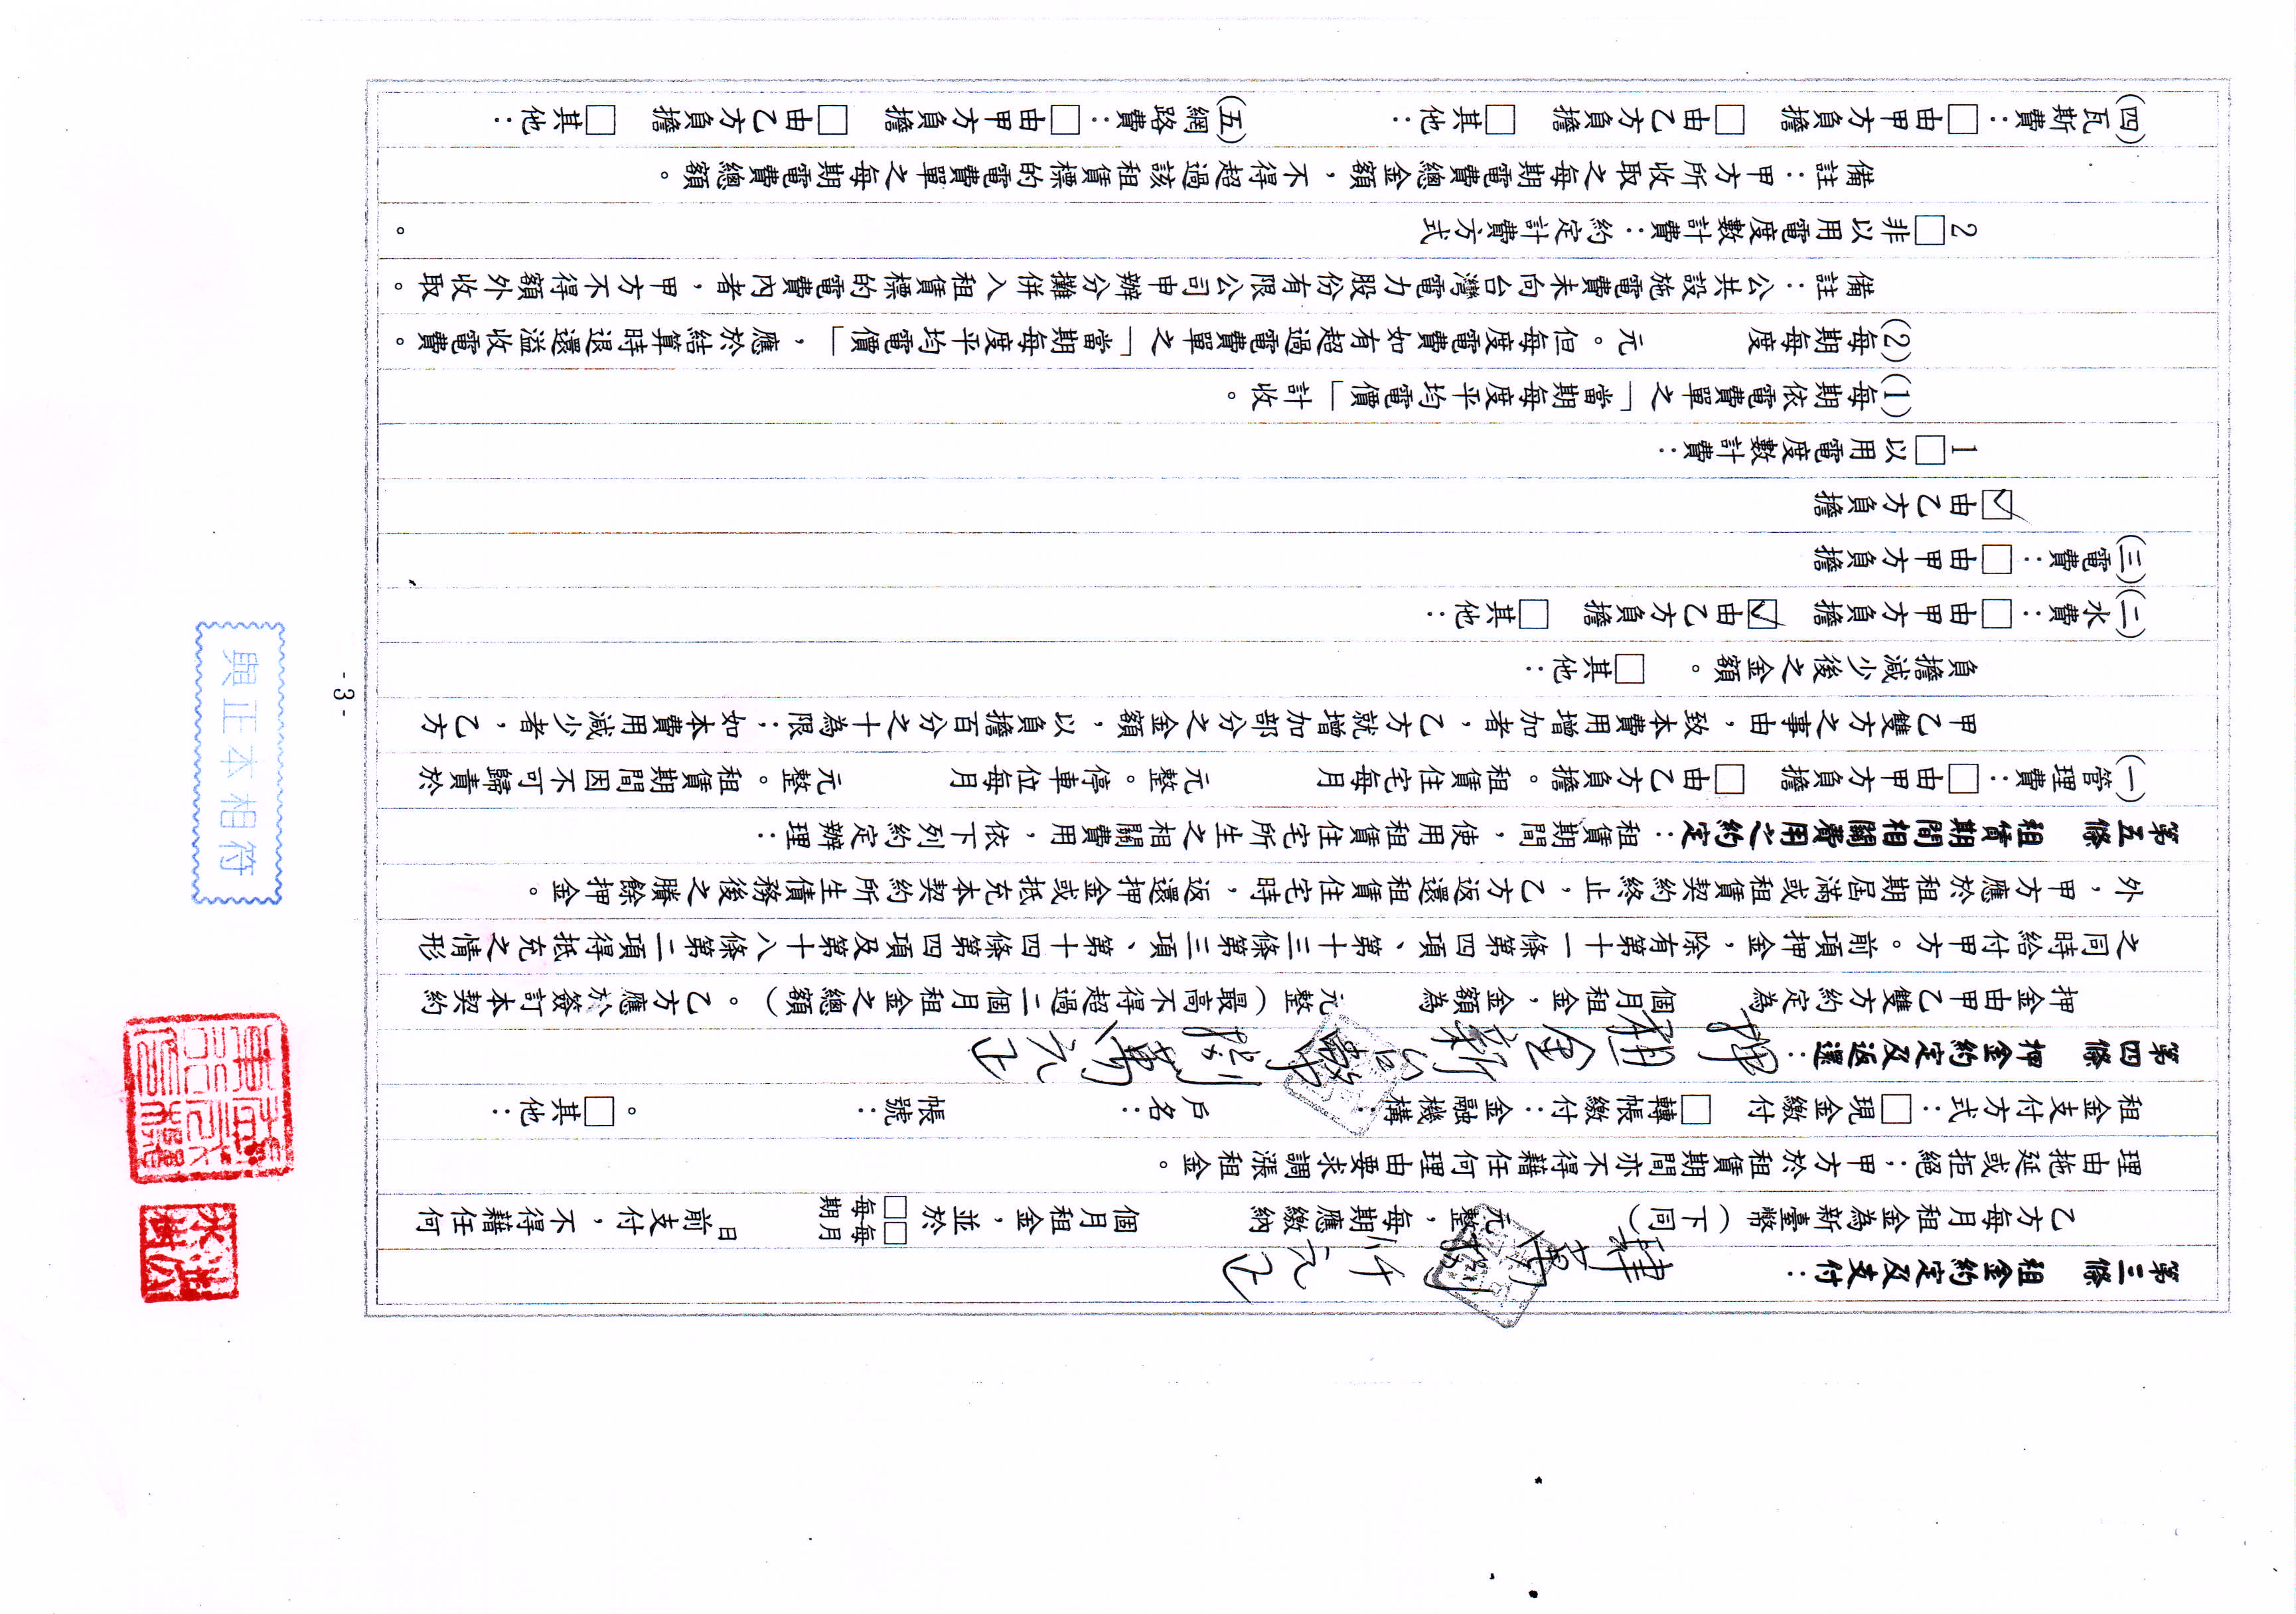 第三條　租金約定及支付：肆萬捌仟元正
乙方每月租金為新臺幣（下同）　元整，每期應繳納　個月租金，並於□每月□每期　日前支付，不得藉任何
理由拖延或拒絕；甲方於租賃期間亦不得藉任何理由要求調漲租金。
租金支付方式：□現金繳付　□轉帳繳付：金融機構：　戶名：　帳號：　。□其他：
第四條　押金約定及返還：押租金新台幣捌萬元正
押金由甲乙雙方約定為　個月租金，金額為　元整（最高不得超過二個月租金之總額）。乙方應於簽訂本契約
之同時給付甲方。前項押金，除有第十一條第四項、第十三條第三項、第十四條第四項及第十八條第二項得抵充之情形
外，甲方應於租期屆滿或租賃契約終止，乙方返還租賃住宅時，返還押金或抵充本契約所生債務後之賸餘押金。
第五條　租賃期間相關費用之約定：租賃期間，使用租賃住宅所生之相關費用，依下列約定辦理：
(一)管理費：□由甲方負擔　□由乙方負擔。租賃住宅每月　元整。停車位每月　元整。租賃期間因不可歸責於
甲乙雙方之事由，致本費用增加者，乙方就增加部分之金額，以負擔百分之十為限；如本費用減少者，乙方
負擔減少後之金額。　□其他：
(二)水費：□由甲方負擔　☑由乙方負擔　□其他：
(三)電費：□由甲方負擔
☑由乙方負擔
1□以用電度數計費：
(1)每期依電費單之「當期每度平均電價」計收。
(2)每期每度　元。但每度電費如有超過電費單之「當期每度平均電價」，應於結算時退還溢收電費。
備註：公共設施電費未向台灣電力股份有限公司申辦分攤併入租賃標的電費內者，甲方不得額外收取。
2□非以用電度數計費：約定計費方式　。
備註：甲方所收取每期之電費總金額，不得超過該租賃標的電費單之每期電費總額。
(四)瓦斯費：□由甲方負擔　□由乙方負擔　□其他：　(五)網路費：□由甲方負擔　□由乙方負擔　□其他：
- 3 -
與正本相符